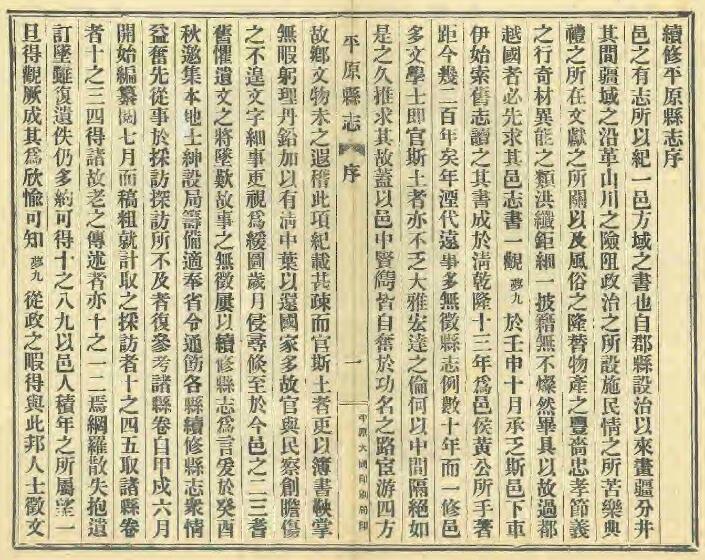 續修平原縣志序
邑之有志所以紀一邑方域之書也自郡縣設治以來畫疆分井
其間疆域之沿革山川之險阻政治之所設施民情之所苦樂典
禮之所在文獻之所關以及風俗之隆替物產之豐嗇忠孝節義
之行奇材異能之類洪纖鉅細一披籍無不燦然畢具以故過都
越國者必先求其邑志書一觀夢九於壬申十月承乏斯邑下車
伊始索舊志讀之其書成於淸乾隆十三年爲邑侯黃公所手著
距今幾二百年矣年湮代遠事多無徵縣志例數十年而一修邑
多文學士卽官斯土者亦不乏大雅宏達之倫何以中間隔絕如
是之久推求其故蓋以邑中賢儁皆自奮於功名之路宦游四方
平原縣志 序 一 平原大同印刷局印
故鄉文物未之遐稽此項紀載甚疎而官斯土者更以簿書鞅掌
無暇躬理丹鉛加以有淸中葉以還國家多故官與民察創瞻傷
之不遑文字細事更視爲緩圖歲月侵尋倐至於今邑之二三耆
舊懼遺文之將墜歎故事之無徵屢以續修縣志爲言爰於癸酉
秋邀集本地士紳設局籌備適奉省令通飭各縣續修縣志衆情
益奮先從事於採訪採訪所不及者復參考諸縣卷自甲戌六月
開始編纂閱七月而稿粗就計取之採訪者十之四五取諸縣卷
者十之三四得諸故老之傳述者亦十之一二焉網羅散失抱遺
訂墜雖復遺佚仍多約可得十之八九以邑人積年之所屬望一
旦得觀厥成其爲欣愉可知夢九從政之暇得與此邦人士徵文